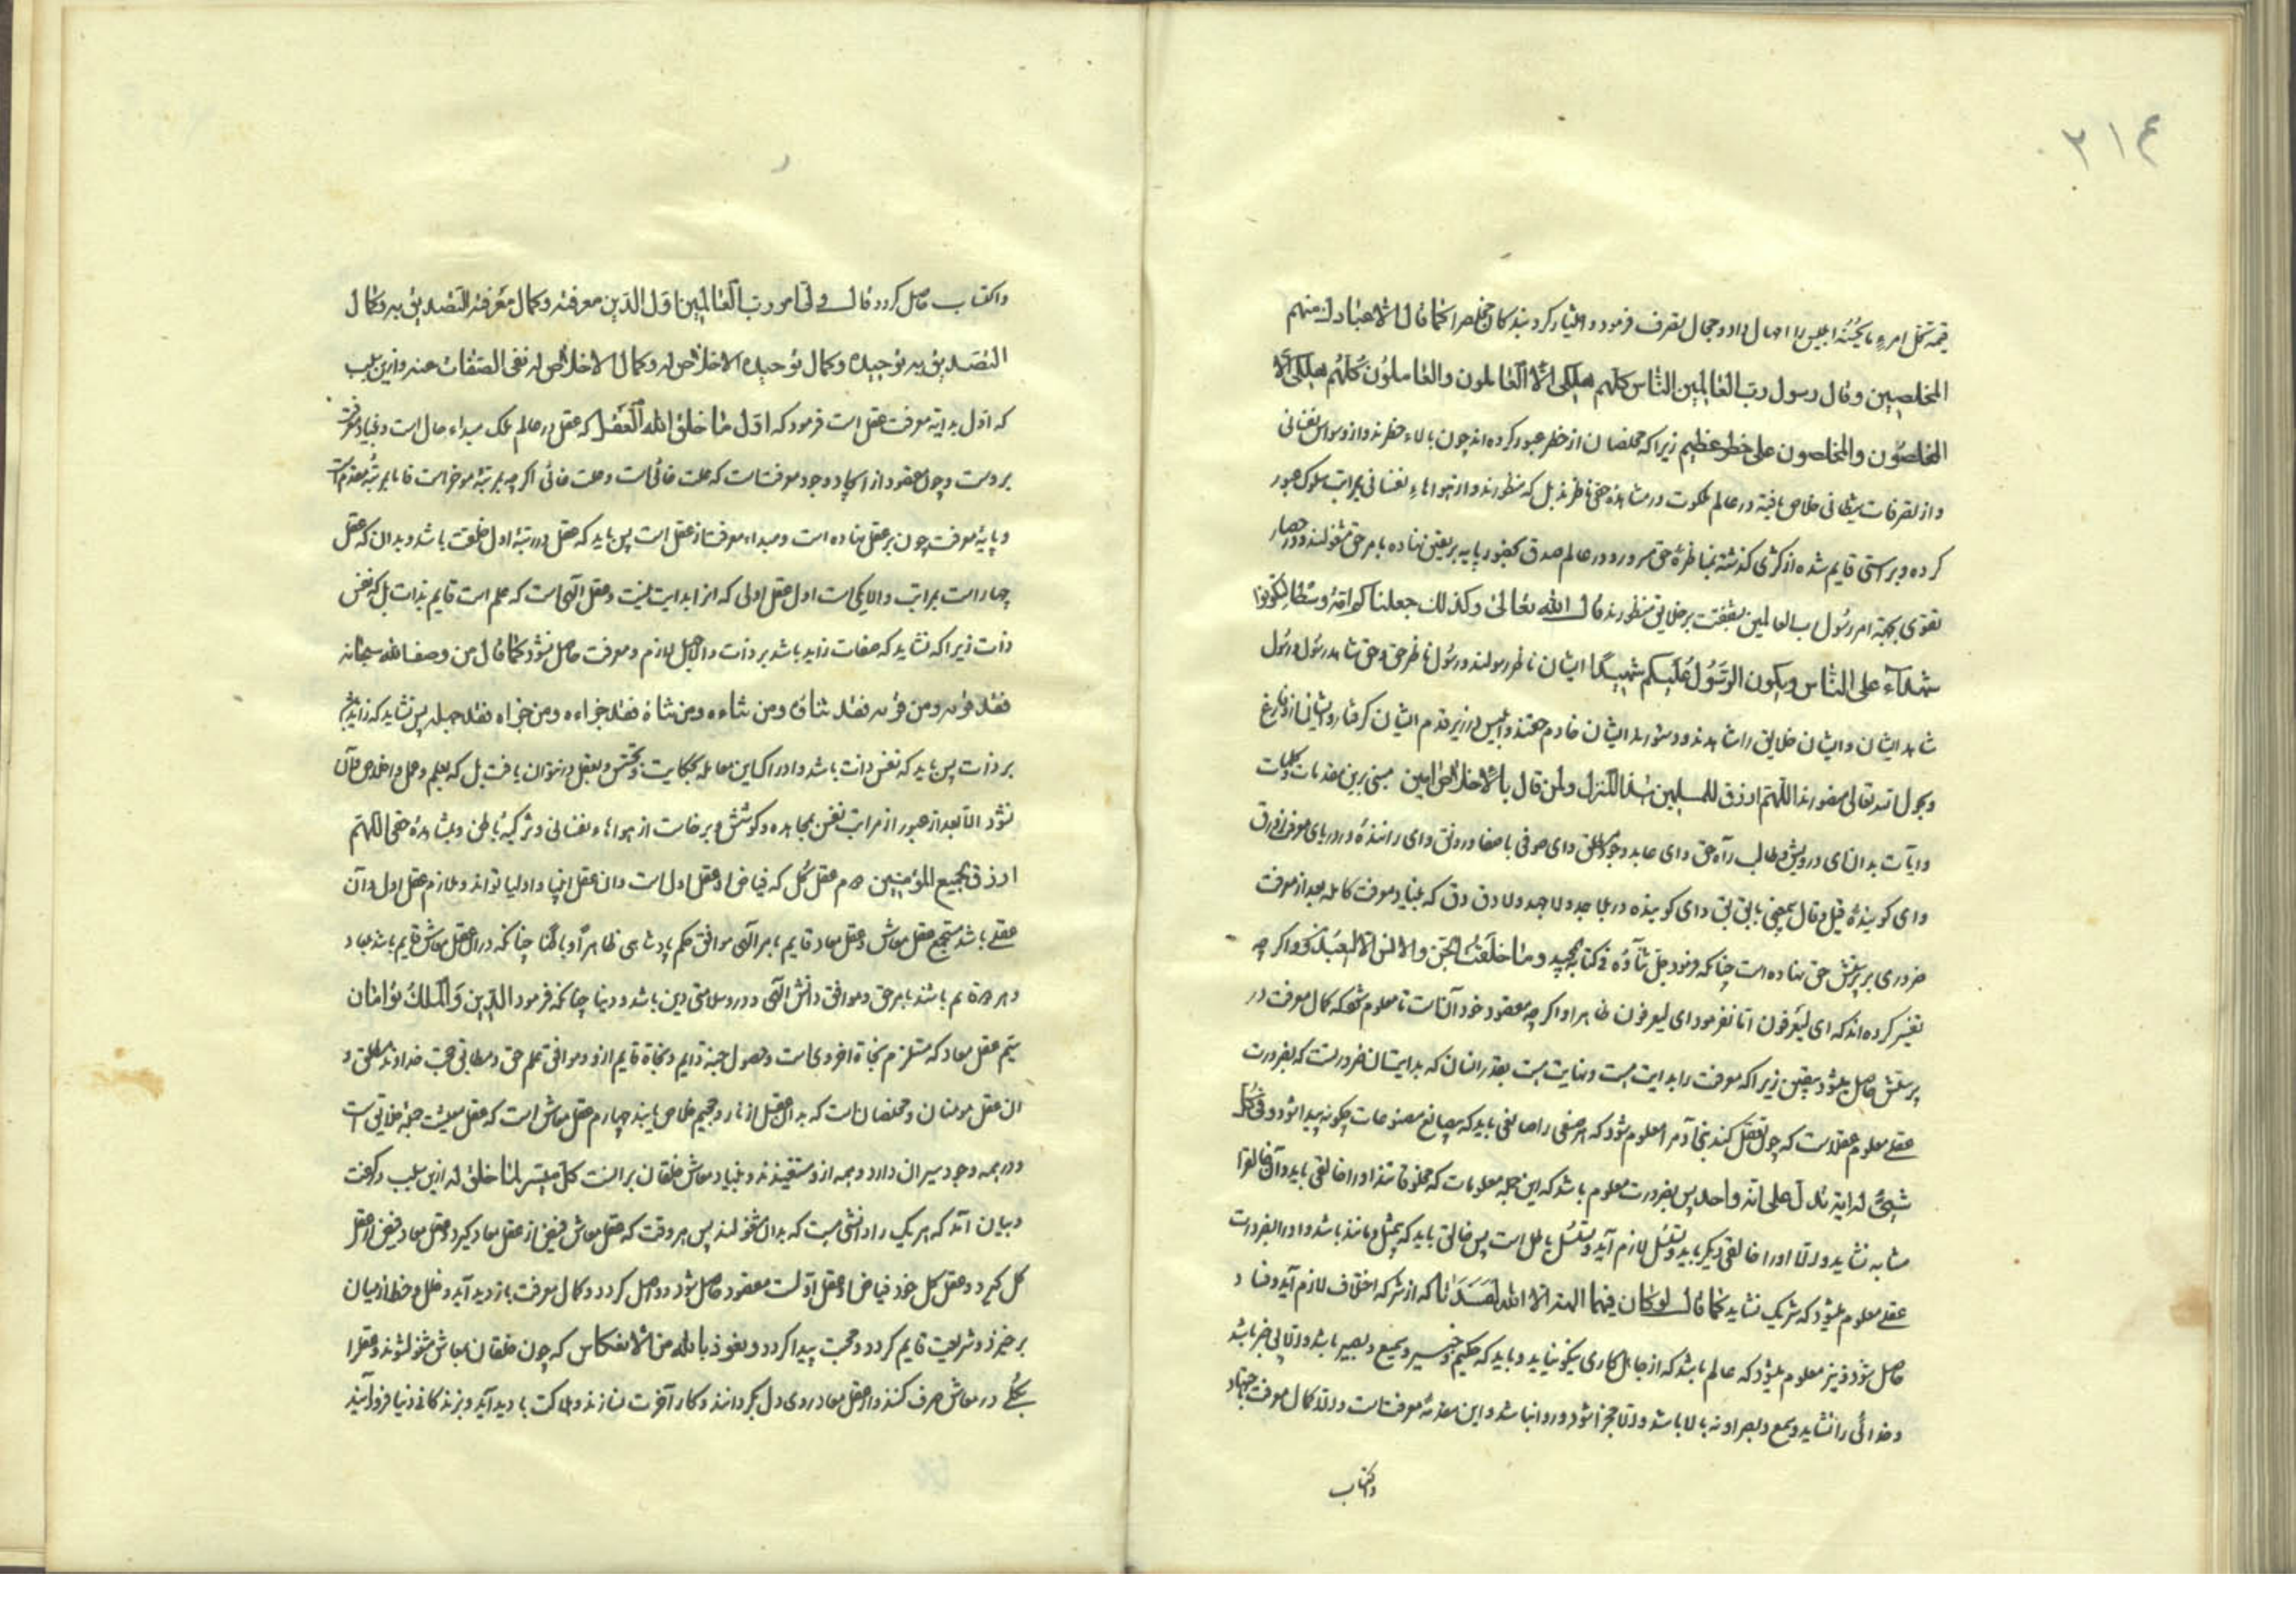 ٢١٤
قیمة کل امرء ما یحسنه ابلیس را امهال داد و مجال تصرف فرمود و اختیار کرد بندکان مخلص را کما قال الا عبادک منهم
المخلصین وقال رسول رب العالمین الناس کلهم هلکی الا العالمون والعاملون کلهم هلکی الا
المخلصون والمخلصون علی خطر عظیم زیرا که مخلصان از خطر عبور کرده اند چون بالاء خطرند و از وسواس نفسانی
و از تصرفات شیطانی خلاص یافته در عالم ملکوت در مشاهده حق ناظرند بل که منظورند و از هواهاء نفسانی بمراتب سلوک عبور
کرده و براستی قایم شده از کژی کذشته بمناظرهٔ حق مسرور و در عالم صدق بحضور پایه بر یقین نهاده بامر حق مشغولند و در حصار
تقوی بحجة امر رسول رب العالمین بشفقت بر خلایق منظورند قال الله تعالی وکذلک جعلناکم امة وسطا لتکونوا
شهداء علی الناس ویکون الرسول علیکم شهیدا ایشان ناظر رسولند و رسول ناظر حق و حق شاهد رسول و رسول
شاهد ایشان و ایشان خلایق را شاهدند و دستور بد ایشان خادم جهنم و ابلیس در زیر قدم ایشان کرفتار و ایشان ازو فارغ
و بحول الله تعالی منصورند اللهم ارزق للمسلمین هذا المنزل ولمن قال بالاخلاص امین مبنی برین مقدمات و کلمات
و آیات بدان ای درویش طالب راه حق و ای عابد وجود مطلق و ای صوفی با صفا و رونق و ای رانندهٔ در دریای معرفت زورق
و ای کویندهٔ قیل و قال بمعنی بابق بق و ای کوبنده در بلا جد ولا جهد ولا دق دق که بنیاد معرفت کامله بعد از معرفت
ضروری بر پرستش حق نهاده است چنانکه فرمود جل ثناؤه فی کتابه المجید وما خلقت الجن والانس الا لیعبدون و اکر چه
تفسیر کرده اند که ای لیعرفون اما نفرمود ای لیعرفون ظاهرا و اکر چه مقصود خود آنست تا معلوم شود که کمال معرفت در
پرستش حاصل میشود بیقین زیرا که معرفت را بدایت هست و نهایت هست بقدر انسان که بدایت آن ضرورتست که بضرورت
عقلی معلوم عقلاست که چون تعقل کند بنی آدم را معلوم شود که هر صنعی را صانعی باید که بی صانع مصنوعات چکونه پیدا شود و فی کل
شیئ له ایة تدل علی انه واحد پس بضرورت معلوم باشد که این جمله معلومات که مخلوقاتند او را خالقی باید و آن خالق را
مشابه نشاید والا او را خالقی دیکر باید و تسلسل لازم آید و تسلسل باطل است پس خالق باید که بی مثل و مانند باشد و او را بضرورت
عقلی معلوم میشود که شریک نشاید کما قال لو کان فیهما الهة الا الله لفسدتا که از شرکه اختلاف لازم آید و فساد
حاصل شود و نیز معلوم میشود که عالم باشد که از جاهل کاری نیکو نیاید و باید که حکیم و خبیر و سمیع و بصیر باشد والا بی خبر باشد
و خدائی را نشاید و سمع و بصر او نه بالا باشد والا محجزا شود و روا نباشد و این مقدمهٔ معرفتست والا کمال معرفت بجهاد
واکتساب
واکتساب حاصل کردد قال ولی امور رب العالمین اول الدین معرفته وکمال معرفته التصدیق به وکمال
التصدیق به توحیده وکمال توحیده الاخلاص له وکمال الاخلاص له نفی الصفات عنه و ازین سبب
که اول بدایة معرفت عقل است فرمود که اول ما خلق الله العقل که عقل در عالم ملک مبداء حال است و بنیاد معرفت
بروست و چون مقصود از ایجاد وجود معرفتست که علت غائی است و علت غائی اکر چه بمرتبهٔ موخر است فاما بمرتبهٔ مقدم است
و پایهٔ معرفت چون بر عقل نهاده است و مبداء معرفت از عقل است پس باید که عقل در رتبهٔ اول خلقت باشد و بدان که عقل
چهار است بمراتب والا یکی است اول عقل اولی که انرا بدایت نیست و عقل الهی است که علم است قایم بذات بل که نفس
ذات زیرا که نشاید که صفات زاید باشد بر ذات والا جهل لازم و معرفت حاصل نشود کما قال من وصف الله سبحانه
فقد قرنه ومن قرنه فقد ثناه ومن ثناه ومن ثناه فقد جزاءه ومن جزاه فقد جهله پس نشاید که زاید باشد
بر ذات پس باید که نفس ذات باشد و ادراک این معامله بحکایت و تجسس و تعقل در نتوان یافت بل که بعلم و عمل و اخلاص قایل
نشود الا بعد از عبور از مراتب نفس بمجاهده و کوشش و برخاست از هواهاء نفسانی و تزکیهٔ باطن و مشاهدهٔ حق اللهم
ارزق لجمیع المؤمنین دوم عقل کل که فیاض از عقل اول است و آن عقل انبیا و اولیا تواند و ملازم عقل اول و آن
عقلی باشد مستجمع عقل معاش و عقل معاد قایم بامر الهی موافق حکم پادشاهی ظاهرا و باطنا چنانکه در آن عقل معاش قایم باشد معاد
و هر دو قایم باشد بامر حق و موافق دانش الهی و درو سلامتی دین باشد و دنیا چنانکه فرمود الدین والملک توامان
سیم عقل معاد که مستلزم نجاة اخروی است و حصول جنة دایم و نجاة قایم ازو و موافق علم حق و مطابق محب خداوند مطلق و
ان عقل مومنان و مخلصان است که بدان عقل از نار و جحیم خلاص یابند چهارم عقل معاش است که عقل معیشت جملهٔ خلایق است
و در همه وجود سیران دارد و همه ازو مستفیدند و بنیاد معاش خلقان بر انست کل میسر لما خلق له ازین سبب در کفت
و بیان آمد که هر یک را دانشی هست که بدان مشغولند پس هر وقت که عقل معاش فیض از عقل معاد کیرد و عقل معاد فیض از عقل
کل کیرد و عقل کل خود فیاض از عقل اولست مقصود حاصل شود و واصل کردد و کمال معرفت بازدید آید و خلل و خطا از میان
برخیزد و شریعت قایم کردد و محبت پیدا کردد ونعوذ بالله من الانعکاس که چون خلقان بمعاش مشغول شوند و عقل را
بکلی در معاش صرف کنند و از عقل معاد روی دل بکردانند و کار آخرت نسازند و هلاکت بادید آید و بزندکانی دنیا فرو آیند